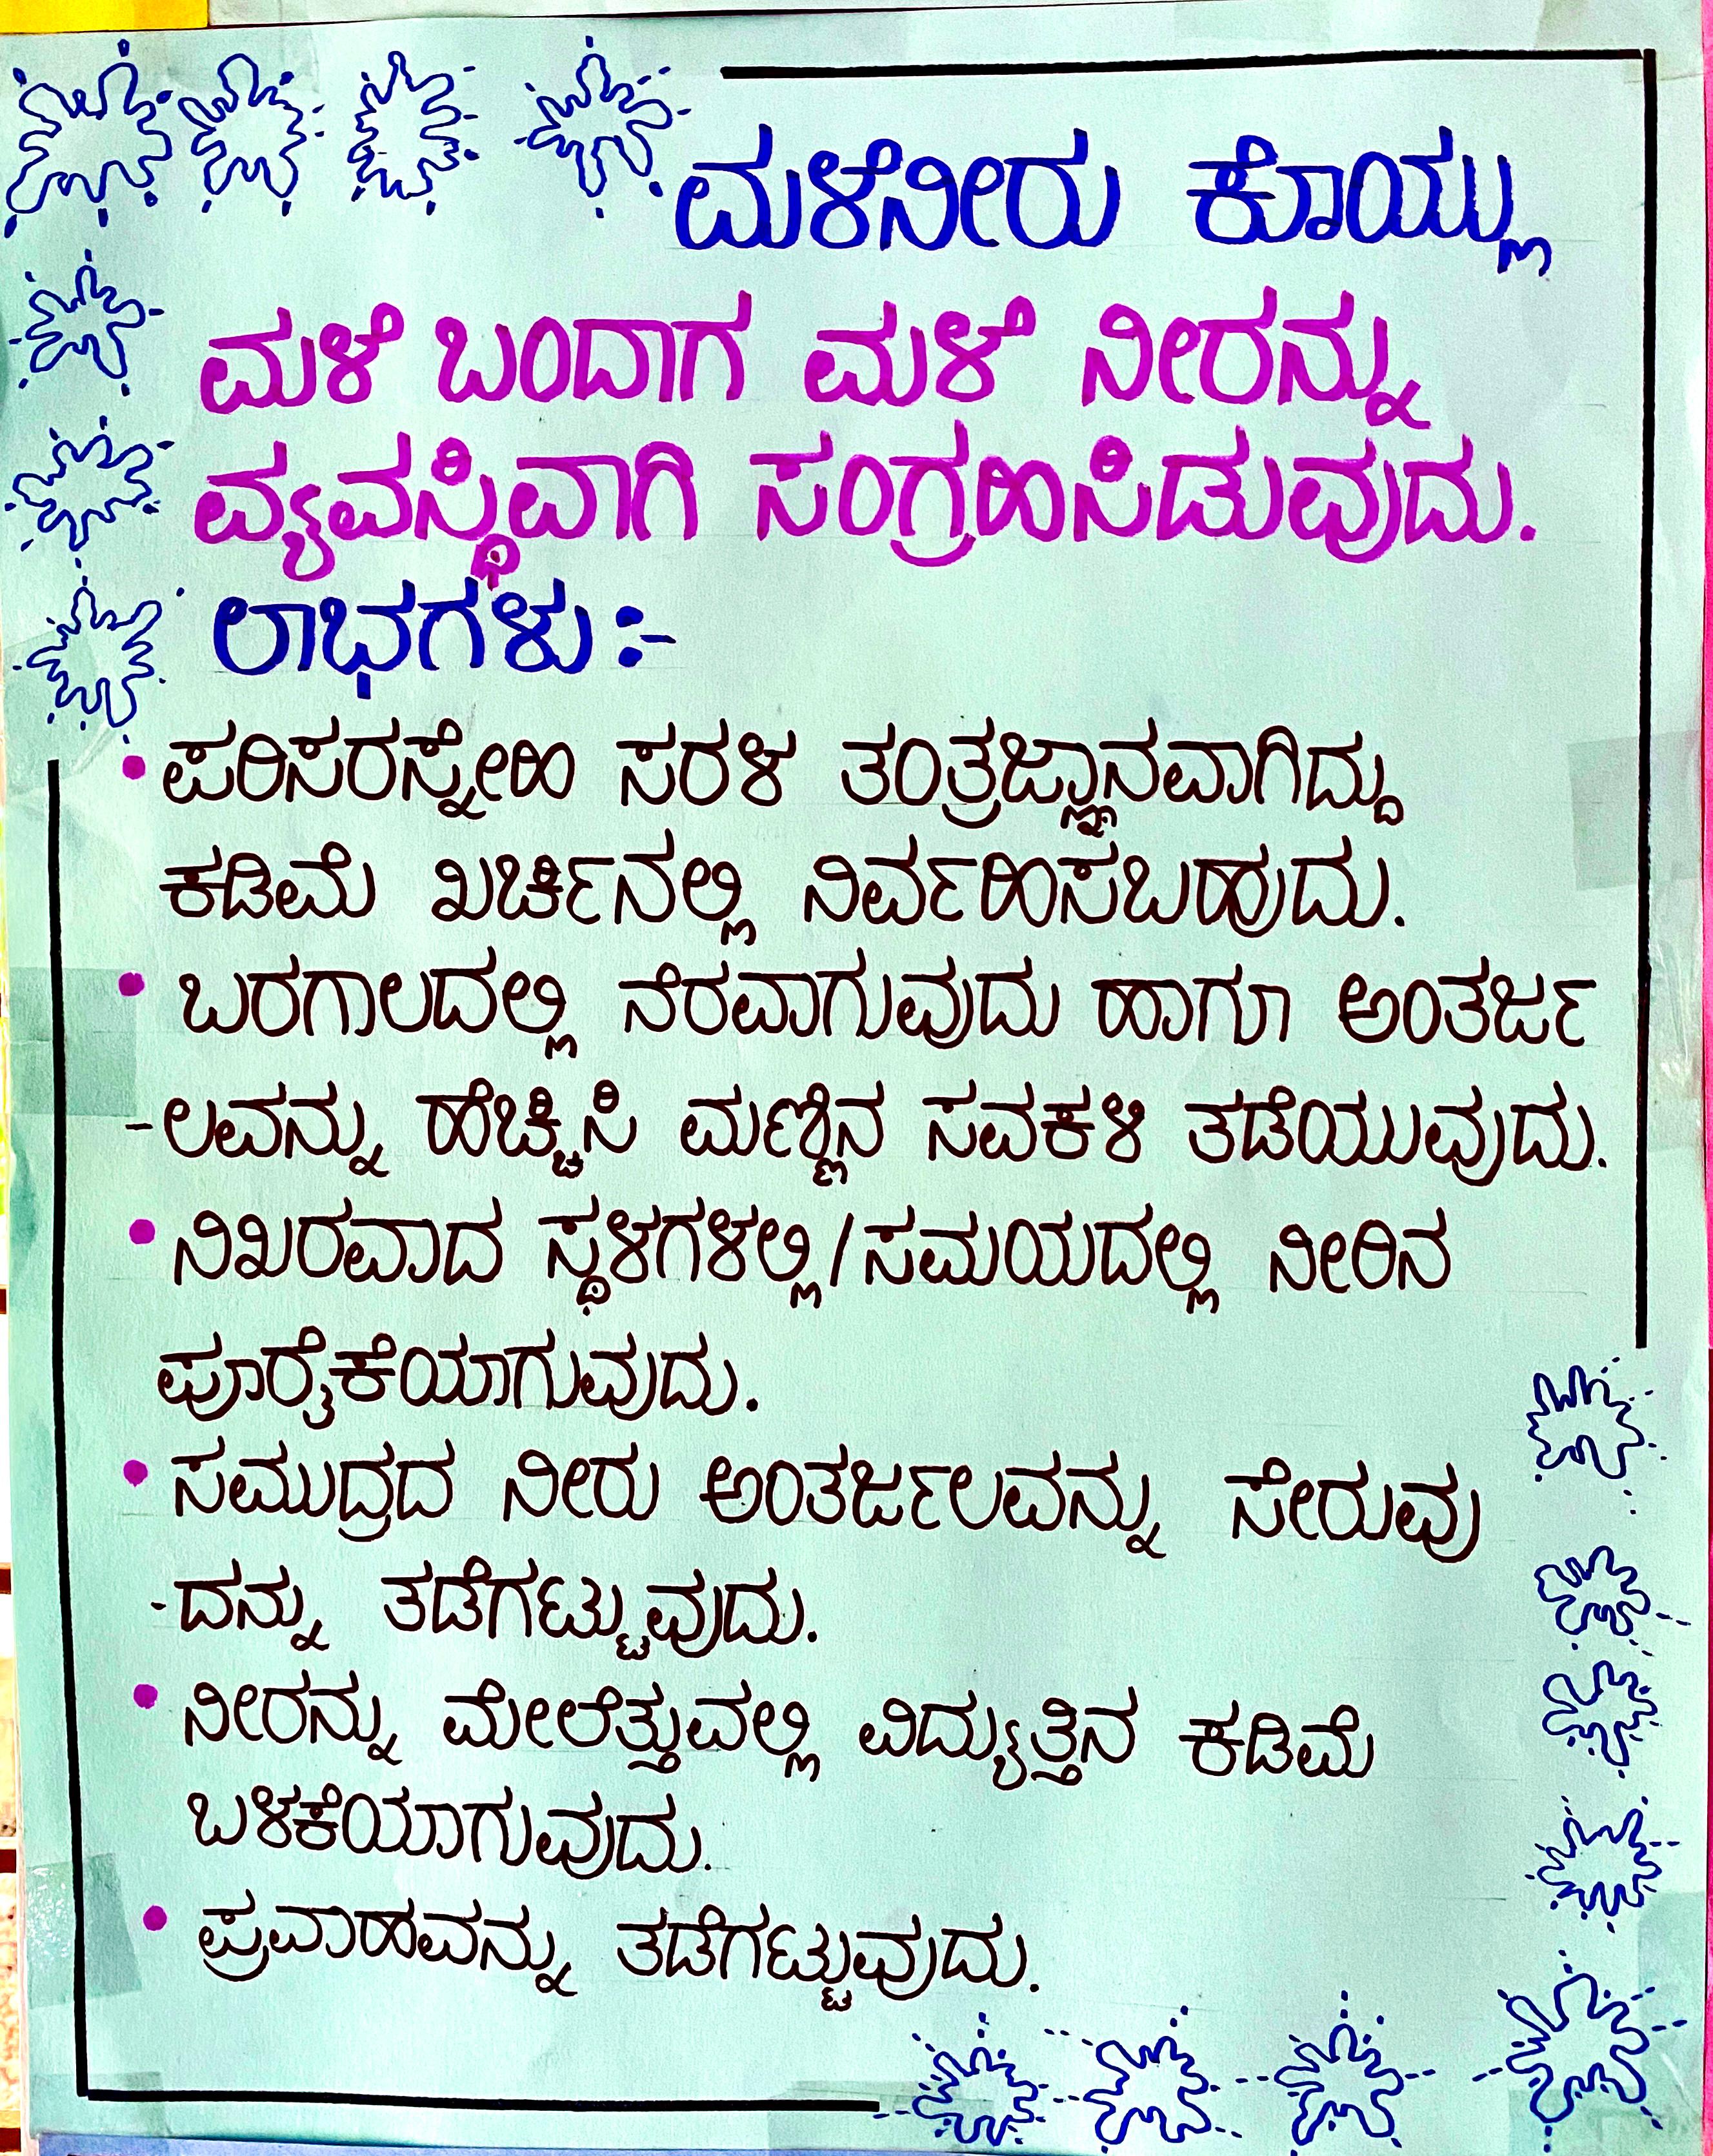 ಮಳೆನೀರು ಕೊಯ್ಲು
ಮಳೆ ಬಂದಾಗ ಮಳೆ ನೀರನ್ನು
ವ್ಯವಸ್ಥಿವಾಗಿ ಸಂಗ್ರಹಿಸಿಡುವುದು.
ಲಾಭಗಳು:-
• ಪರಿಸರಸ್ನೇಹಿ ಸರಳ ತಂತ್ರಜ್ಞಾನವಾಗಿದ್ದು
ಕಡಿಮೆ ಖರ್ಚಿನಲ್ಲಿ ನಿರ್ವಹಿಸಬಹುದು.
• ಬರಗಾಲದಲ್ಲಿ ನೆರವಾಗುವುದು ಹಾಗೂ ಅಂತರ್ಜ
-ಲವನ್ನು ಹೆಚ್ಚಿಸಿ ಮಣ್ಣಿನ ಸವಕಳಿ ತಡೆಯುವುದು.
• ನಿಖರವಾದ ಸ್ಥಳಗಳಲ್ಲಿ/ಸಮಯದಲ್ಲಿ ನೀರಿನ
ಪೂರೈಕೆಯಾಗುವುದು.
• ಸಮುದ್ರದ ನೀರು ಅಂತರ್ಜಲವನ್ನು ಸೇರುವು
-ದನ್ನು ತಡೆಗಟ್ಟುವುದು.
• ನೀರನ್ನು ಮೇಲೆತ್ತುವಲ್ಲಿ ವಿದ್ಯುತ್ತಿನ ಕಡಿಮೆ
ಬಳಕೆಯಾಗುವುದು.
• ಪ್ರವಾಹವನ್ನು ತಡೆಗಟ್ಟುವುದು.